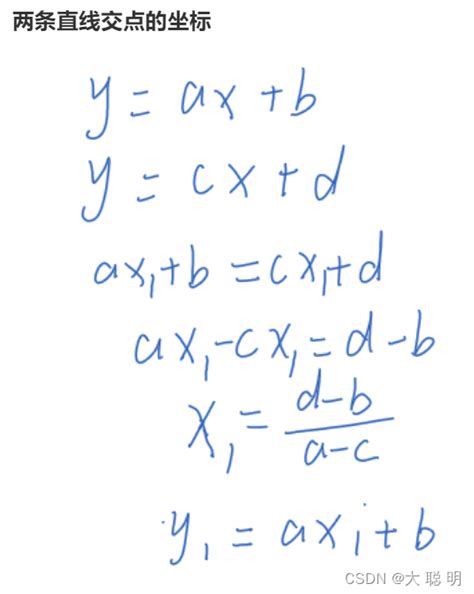 两条直线交点的坐标
y = ax + b
y = cx + d
ax₁+b = cx₁+d
ax₁-cx₁ = d-b
x₁ = (d-b)/(a-c)
y₁ = ax₁+b
CSDN @大聪明